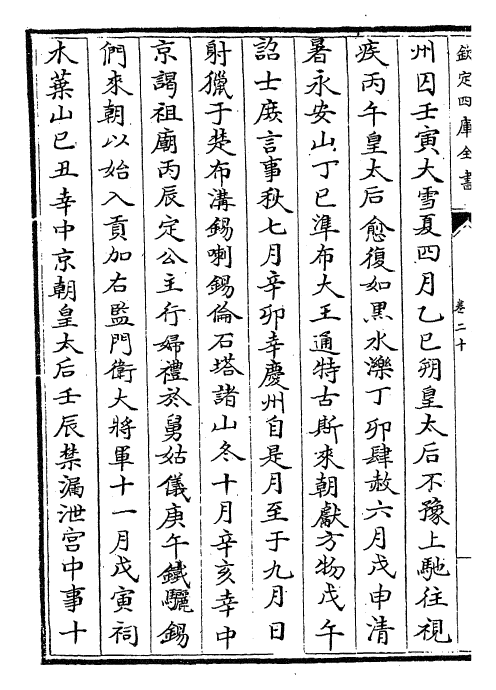 欽定四庫全書
卷二十
州囚壬寅大雪夏四月乙巳朔皇太后不豫上馳往視
疾丙午皇太后愈復如黒水濼丁卯肆赦六月戊申清
暑永安山丁巳準布大王通特古斯來朝獻方物戊午
詔士庶言事秋七月辛卯幸慶州自是月至于九月日
射獵于楚布溝錫喇錫倫石塔諸山冬十月辛亥幸中
京謁祖廟丙辰定公主行婦禮於舅姑儀庚午鐵驪錫
們來朝以始入貢加右監門衛大將軍十一月戊寅祠
木葉山己丑幸中京朝皇太后壬辰禁漏泄宫中事十